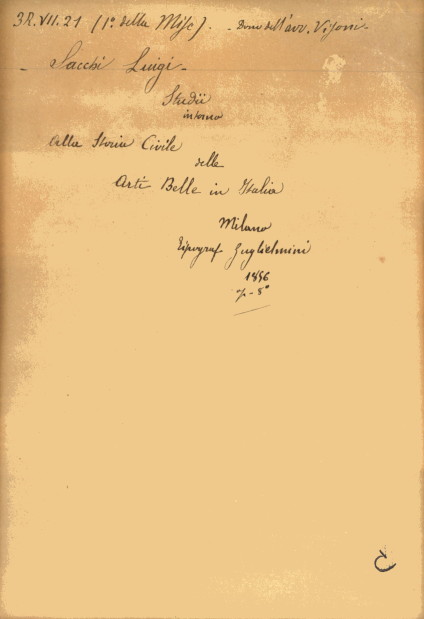 3R.VII.21 (1° della Misc). - Dono dell'avv. Vigoni -
- Sacchi Luigi -
Studii
intorno
alla Storia Civile
delle
Arti Belle in Italia
Milano
Tipograf Guglielmini
1856
8°